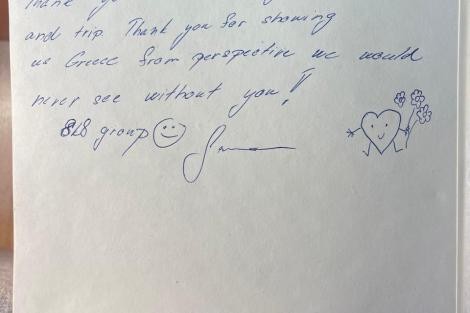 Thank you
and trip. Thank you for showing
us Greece from perspective we would
never see without you!
group